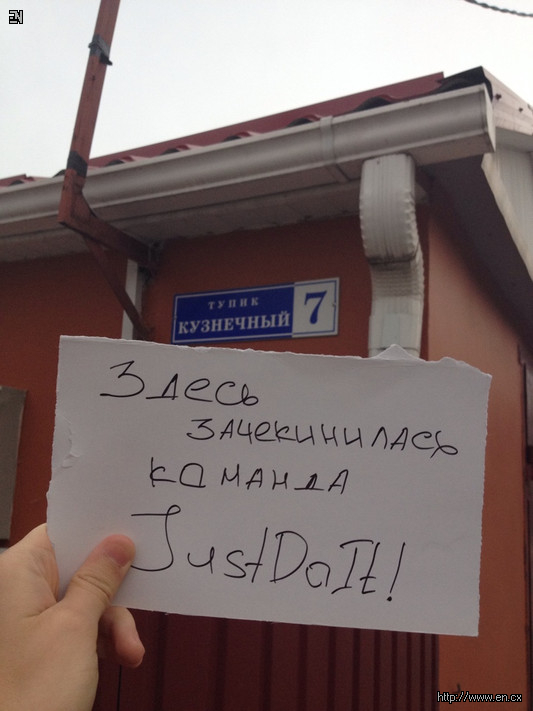 EN
ТУПИК
КУЗНЕЧНЫЙ 7
Здесь
зачекинилась
команда
JustDoIt!
http://www.en.cx